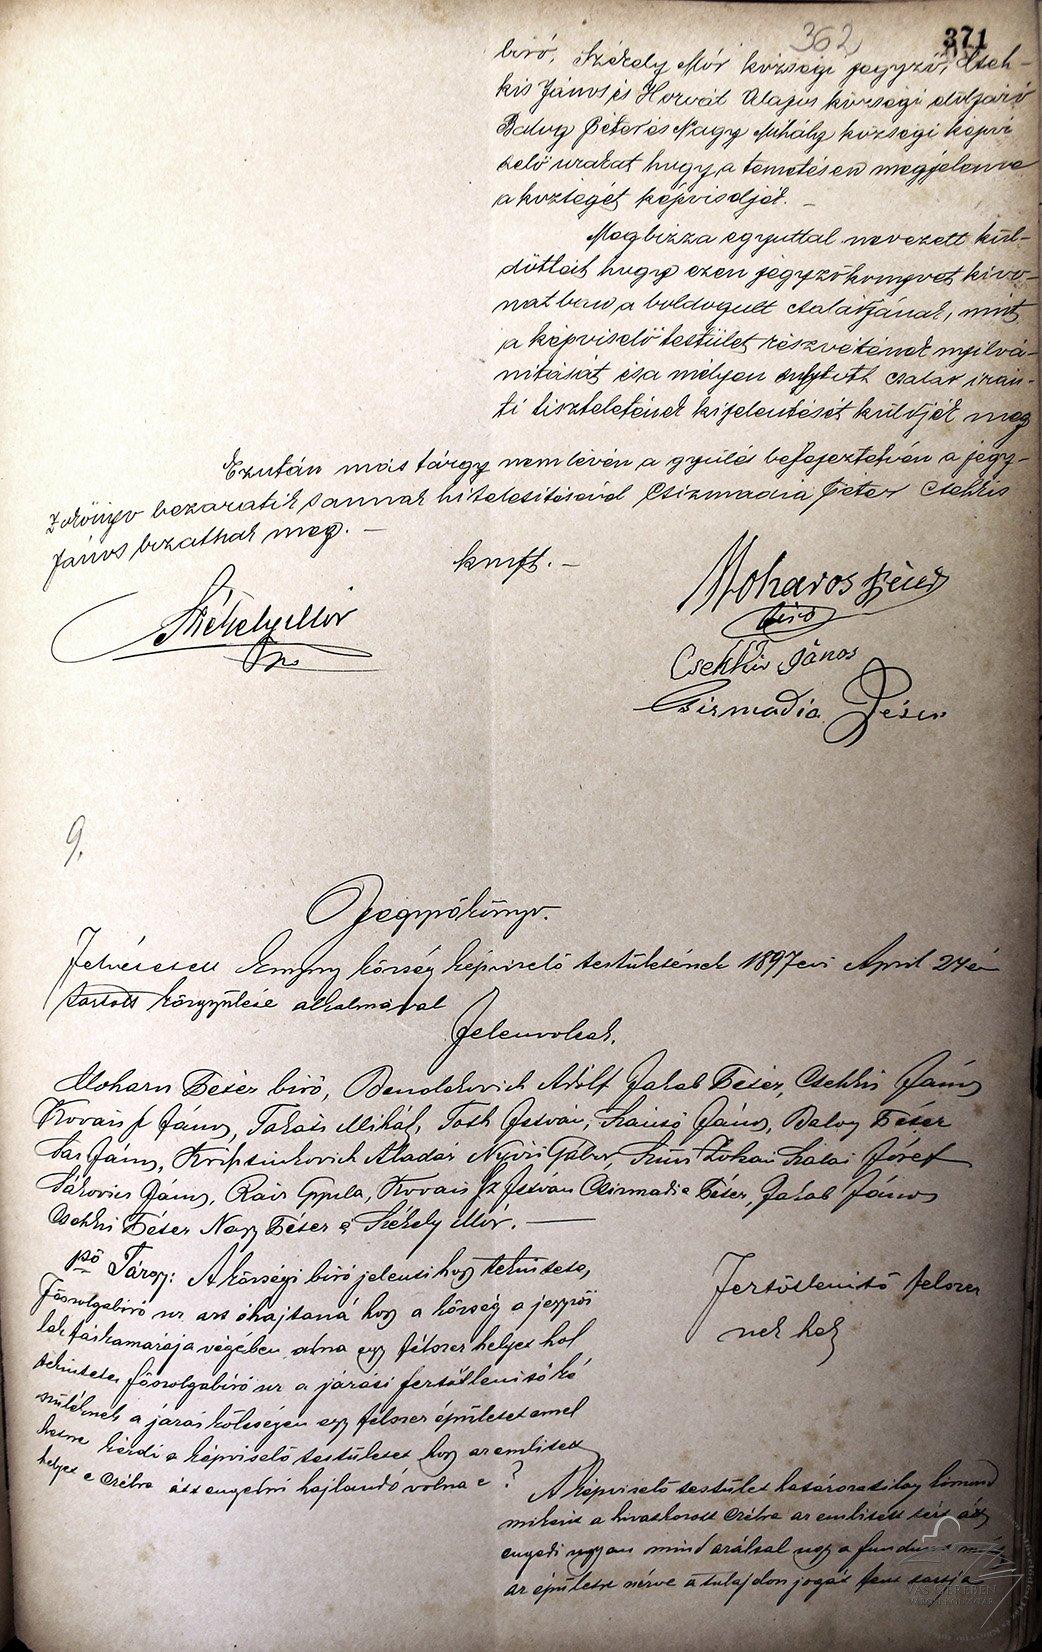 362
371
biró, Székely Mór községi jegyző, Cseh-
kis János és Horvát Alajos községi előljáró
Balog Péter és Nagy Mihály községi képvi
selő urakat hogy a temetésen megjelenve
a községét képviseljék. –
Megbizza egyuttal nevezett kül-
dötteit hogy ezen jegyzőkönyvet kivo-
natban a boldogult családjának, mint
a képviselő testület részvétének nyilvá-
nitását és a mélyen sujtott család irán-
ti tiszteletének kijelentését küldjék meg
Ezután más tárgy nem lévén a gyülés befejeztetvén a jegy-
zőkönyv bezáratik s annak hitelesitésével Csizmadia Péter Csehkis
János bizattak meg. –
kmft. –
Székely Mór
jző
Moharos Péter
biró
Csehkis János
Csizmadia Péter
9.
Jegyzőkönyv.
Felvétetett község képviselő testületének 1897 évi April 24 én
tartott közgyülése alkalmával
Jelenvoltak.
Moharos Péter biró, Adolf Jakab Péter, Csehkis János
Kovács J János, Takáts Mihál, Toth István, Szántó János, Balog Péter
Sás János, Aladár Nyőri Gábor, Szalai József
János, Rács Gyula, Kovács István Csizmadia Péter, Jakab János
Csehkis Péter Nagy Péter és Székely Mór. –
1ső Tárgy: A községi biró jelenti hogy tekintetes
Főszolgabiró ur azt óhajtaná hogy a község a jegyzői
lak fáskamarája végében adna egy félszer helyet hol
tekintetes főszolgabiró ur a járási fertőtlenitő ké
szüléknek a járás költségén egy félszer épületet emel
hetne kérdi a képviselő testületet hogy az emlitett
helyet e czélra átt engedni hajlandó volna e ?
Fertőtlenitő felszer
nek hely
A képviselő testület határozatilag kimond
miként a hivatkozott czélra az emlitett tért átt
engedi ugyan mind azáltal ugy a fundus
az épületre nézve a tulajdon jogát fent tartja
VAS EREBEN
VÁROSI KÖNYVTÁR